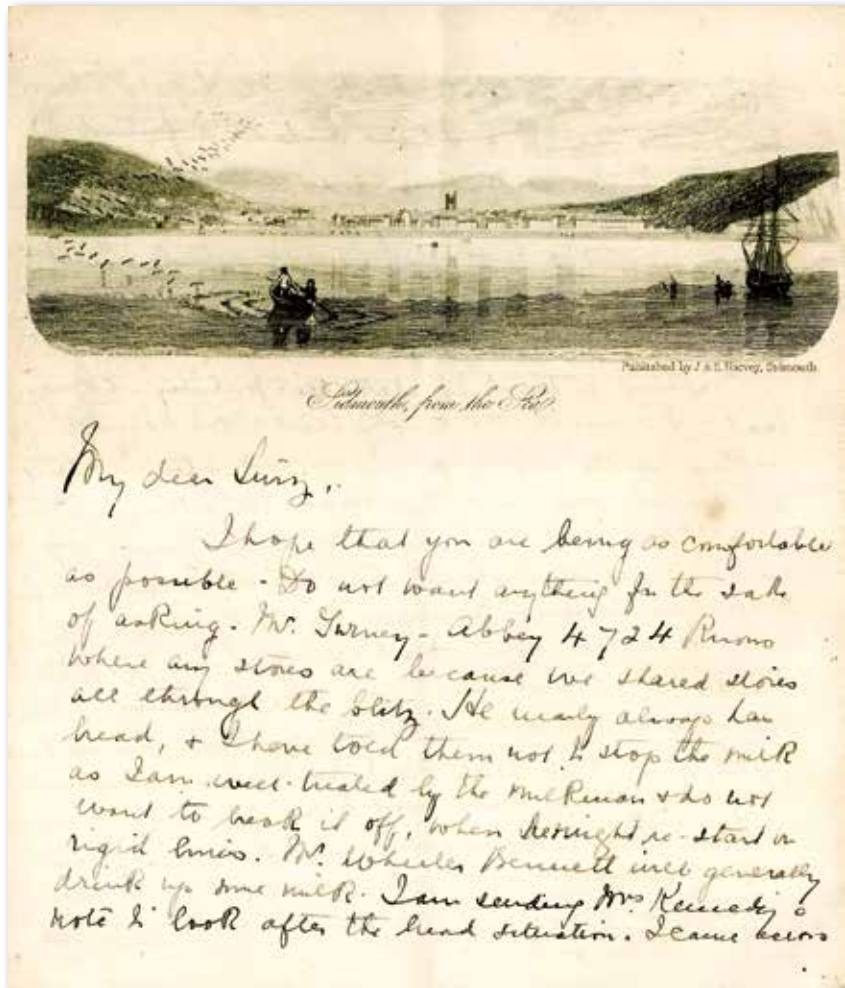 Published by J & E Harvey, Sidmouth
Sidmouth, from the Sea.
My dear
I hope that you are being as comfortable
as possible - Do not want anything for the sake
of asking. Mr. Gurney - Abbey 4724 Knows
where any stores are because we shared stores
all through the blitz. He nearly always has
bread, & I have told them not to stop the milk
as I am well-treated by the milkman & do not
want to break it off, when he might re-start on
rigid lines. Mr. Wheeler Bennett will generally
drink up some milk. I am sending Mrs Kennedy a
note to look after the bread situation. I came across